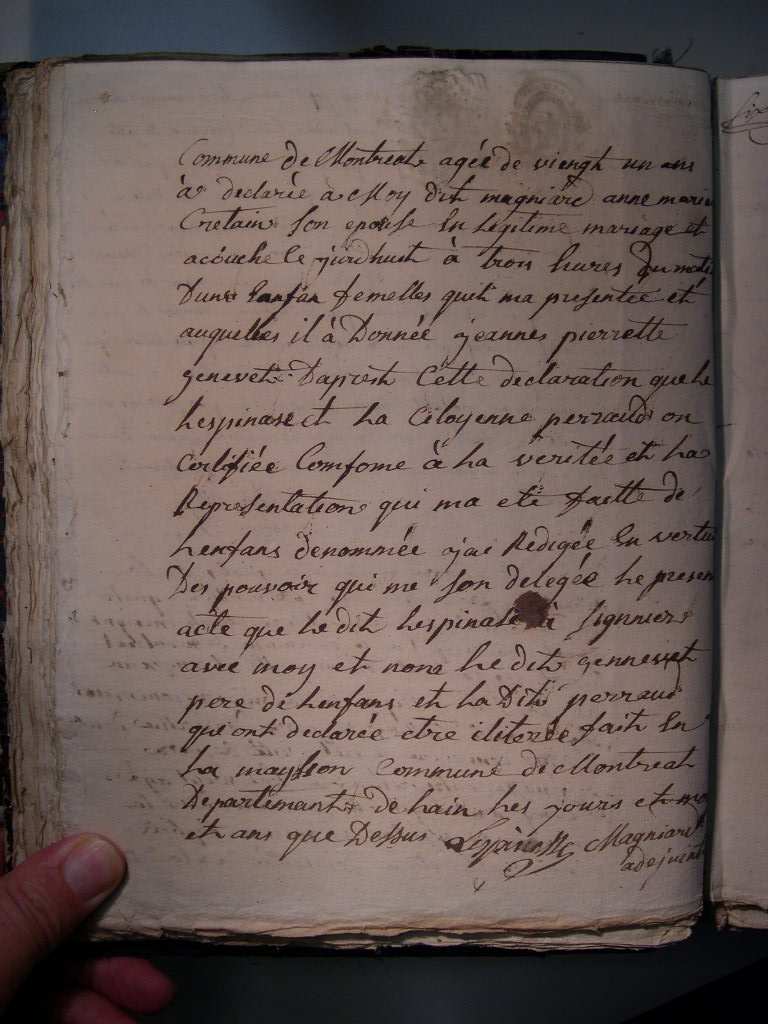 Commune de Montreal agée de viengh un ans
à declarée a Moy dit magniard anne marie
Cretain son epouse En legitime mariage et
acouche le jurdhuit à trois hures du mati
Dune Lanfan femelles quil ma presentée et
auquelles il à Donnée jeannes pierrette
genevet Daprest Cette declaration que le
lespinasse et la Citoyenne perraud on
Certifiée Comfome à la veritée et la
Representation qui ma eté faitte de
lenfans denommée jai Redigée En vertu
Des pouvoir qui me son delegée le presen
acte que le dit lespinase à signnier
avec moy et nona le dit gennevet
pere de lenfans et la Dite perraud
qui ont declarée etre iliterée fait En
la maysson Commune de Montreal
Departimant de lain les jours et mo
et ans que Dessus Lespinasse Magniard
adejuint